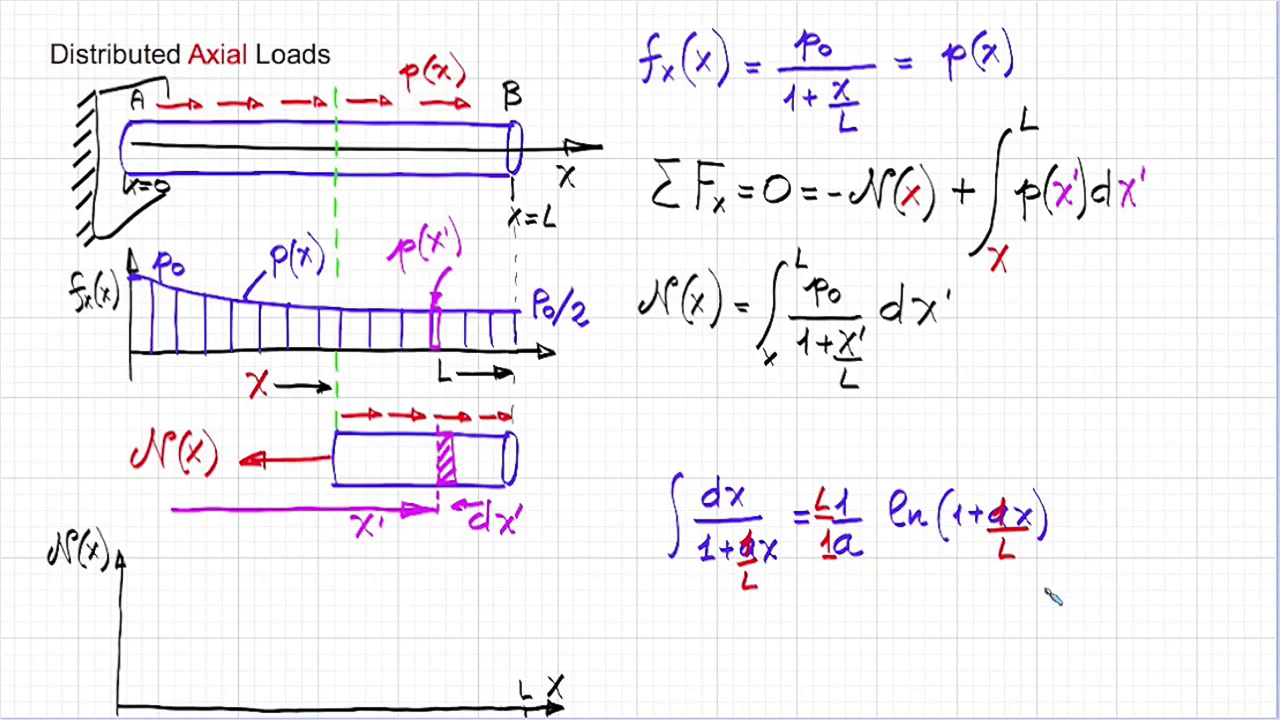 Distributed Axial Loads
p(x)
A
B
x=0
x
x=L
f_x(x)
p₀
p(x)
p(x')
P₀/2
x
L
N(x)
x'
dx'
N(x)
L
x
f_x(x) = p₀ / (1 + x/L) = p(x)
∑F_x = 0 = -N(x) + ∫_x^L p(x')dx'
N(x) = ∫_x^L p₀ / (1 + x'/L) dx'